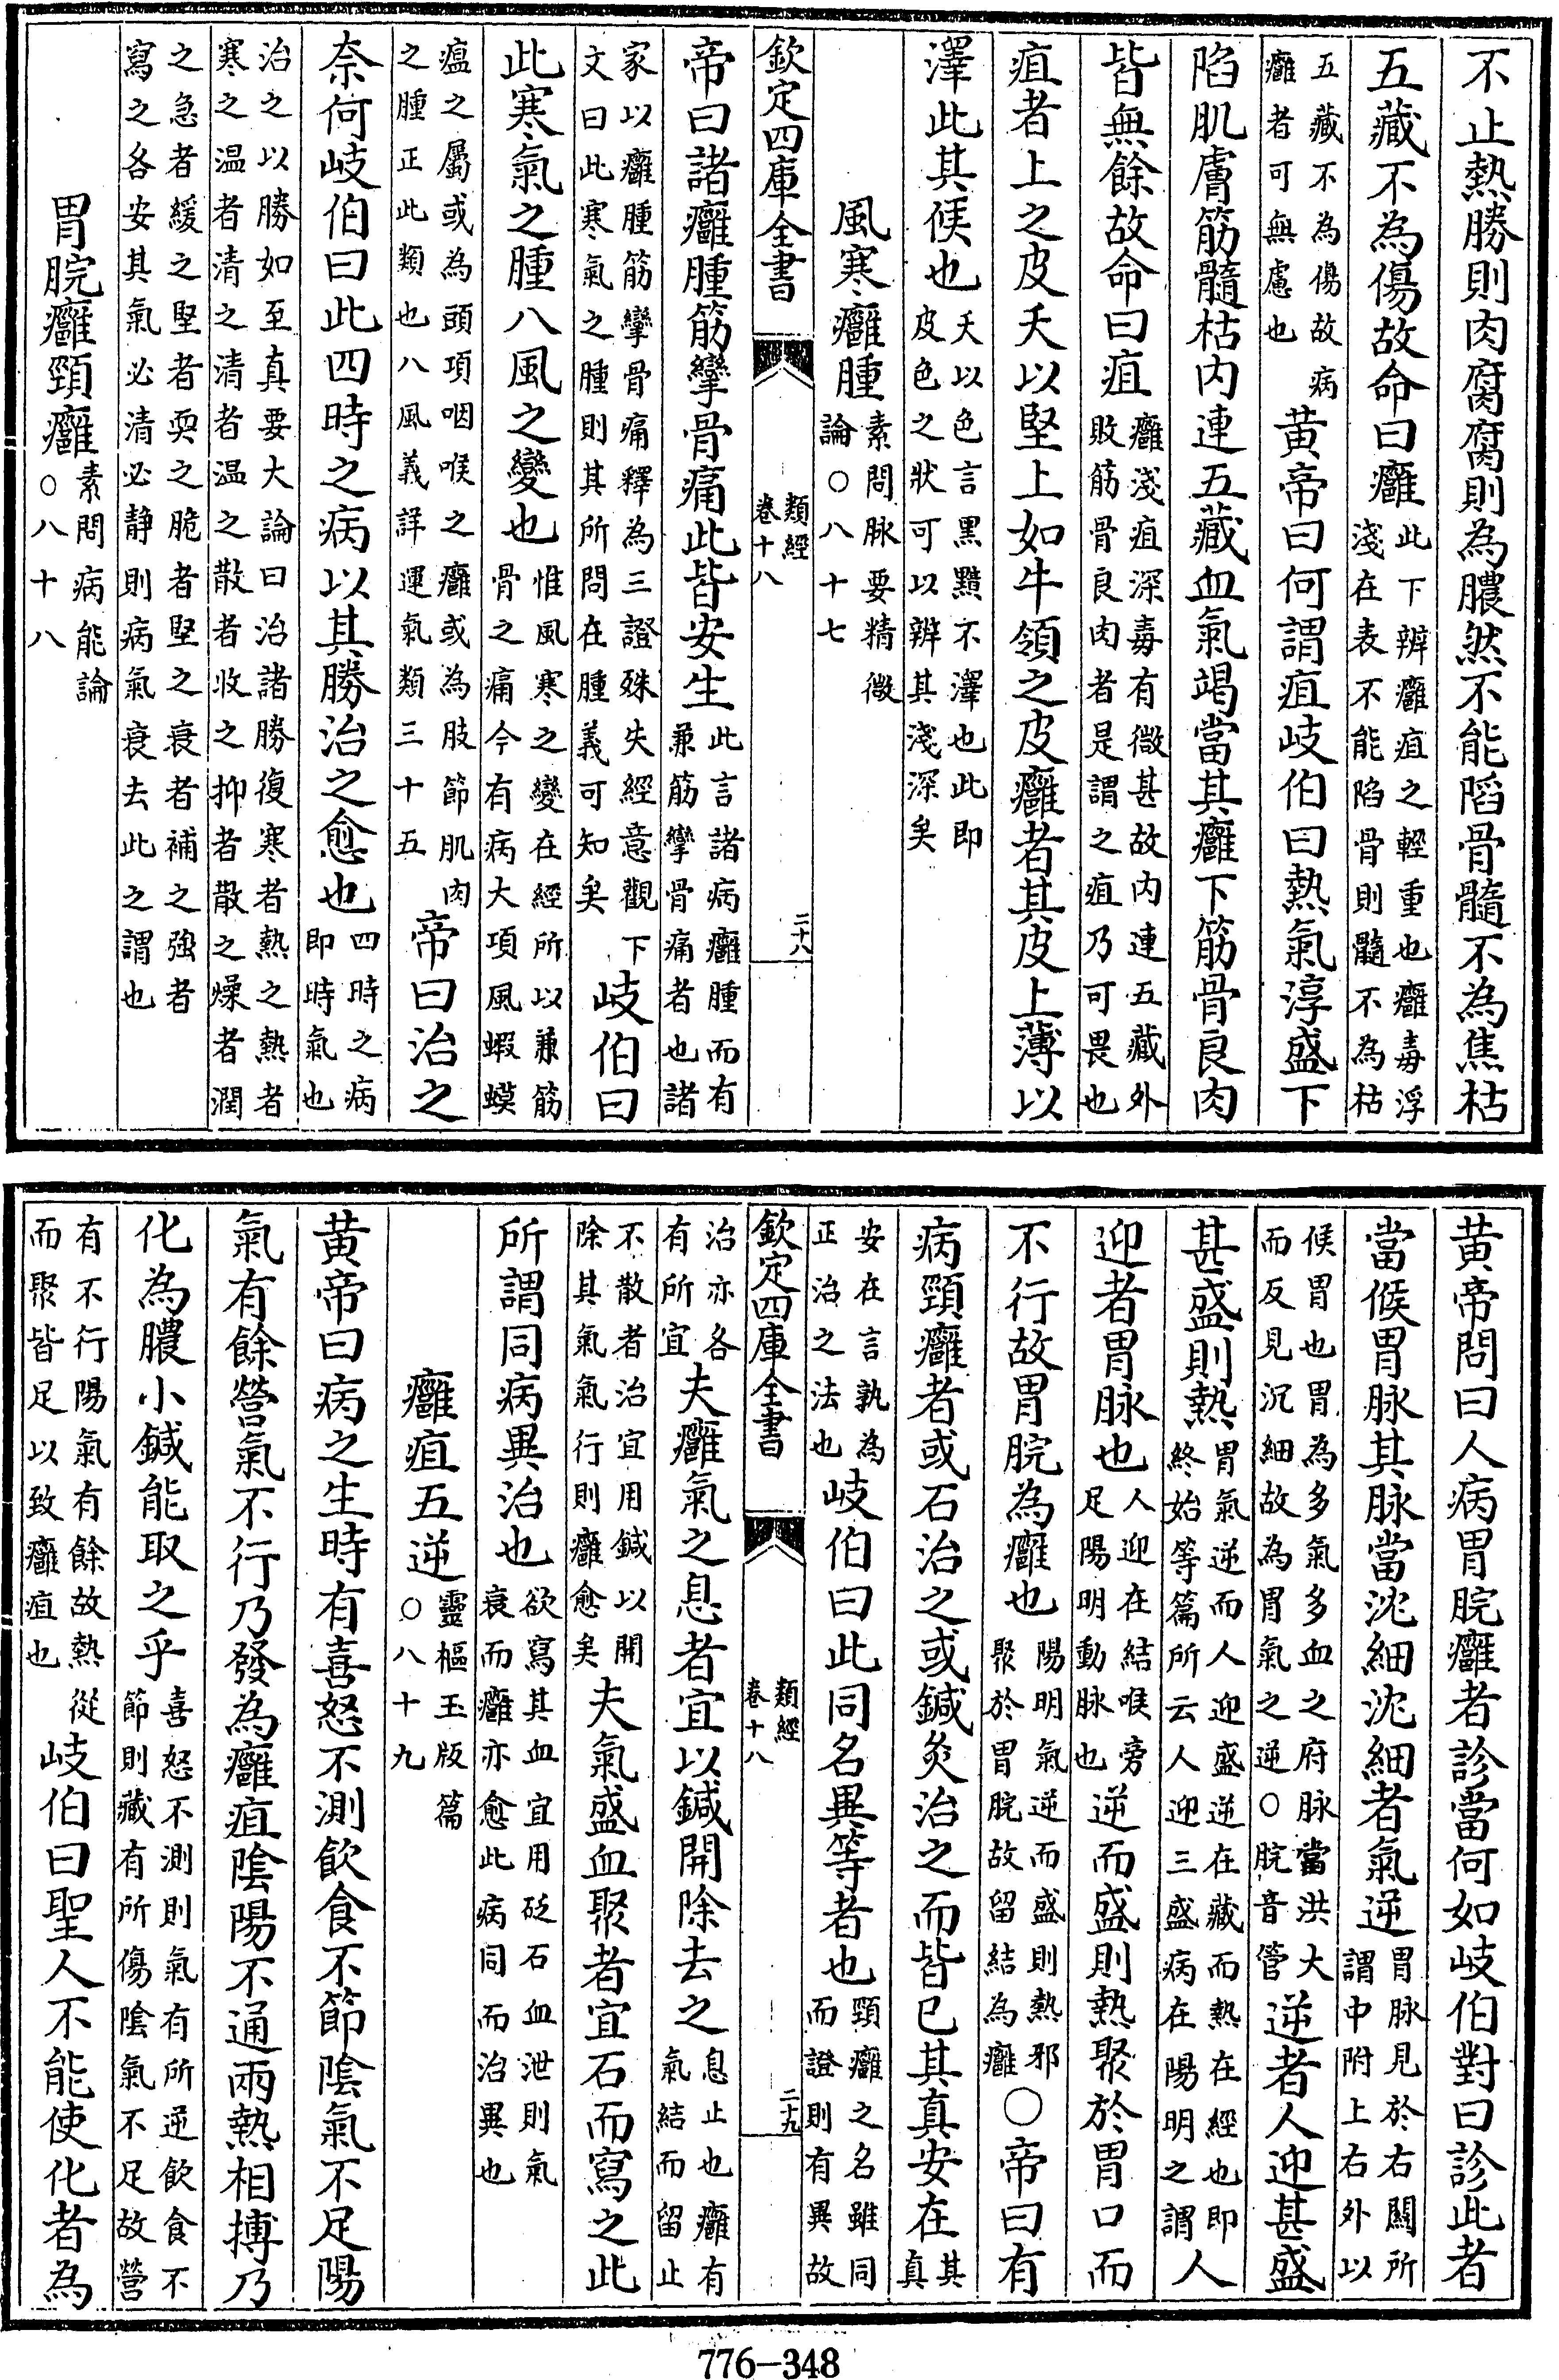 不止熱勝則肉腐腐則為膿然不能䧟骨髓不為焦枯
五藏不為傷故命曰癰此下辨癰疽之輕重也癰毒浮淺在表不能䧟骨則髓不為枯
五藏不為傷故病癰者可無慮也黄帝曰何謂疽岐伯曰熱氣淳盛下
䧟肌膚筋髓枯内連五藏血氣竭當其癰下筋骨良肉
皆無餘故命曰疽癰淺疽深毒有微甚故内連五藏外敗筋骨良肉者是謂之疽乃可畏也
疽者上之皮夭以堅上如牛領之皮癰者其皮上薄以
澤此其候也夭以色言黑黯不澤也此即皮色之狀可以辨其淺深矣
風寒癰腫素問脉要精微論○八十七
欽定四庫全書
類經
卷十八
二十八
帝曰諸癰腫筋攣骨痛此皆安生此言諸病癰腫而有兼筋攣骨痛者也諸
家以癰腫筋攣骨痛釋為三證殊失經意觀下文曰此寒氣之腫則其所問在腫義可知矣岐伯曰
此寒氣之腫八風之變也惟風寒之變在經所以兼筋骨之痛今有病大項風蝦蟆
瘟之屬或為頭項咽喉之癰或為肢節肌肉之腫正此類也八風義詳運氣類三十五帝曰治之
奈何岐伯曰此四時之病以其勝治之愈也四時之病即時氣也
治之以勝如至真要大論曰治諸勝復寒者熱之熱者寒之温者清之清者温之散者收之抑者散之燥者潤
之急者緩之堅者耎之脆者堅之衰者補之強者寫之各安其氣必清必靜則病氣衰去此之謂也
胃脘癰頸癰素問病能論○八十八
黄帝問曰人病胃脘癰者診當何如岐伯對曰診此者
當候胃脉其脉當沈細沈細者氣逆胃脉見於右關所謂中附上右外以
候胃也胃為多氣多血之府脉當洪大而反見沉細故為胃氣之逆○脘音管逆者人迎甚盛
甚盛則熱胃氣逆而人迎盛逆在藏而熱在經也即終始等篇所云人迎三盛病在陽明之謂人
迎者胃脉也人迎在結喉旁足陽明動脉也逆而盛則熱聚於胃口而
不行故胃脘為癰也陽明氣逆而盛則熱邪聚於胃脘故留結為癰○帝曰有
病頸癰者或石治之或鍼灸治之而皆已其真安在其真
安在言孰為正治之法也岐伯曰此同名異等者也頸癰之名雖同而證則有異故
欽定四庫全書
類經
卷十八
二十九
治亦各有所宜夫癰氣之息者宜以鍼開除去之息止也癰有氣結而留止
不散者治宜用鍼以開除其氣氣行則癰愈矣夫氣盛血聚者宜石而寫之此
所謂同病異治也欲寫其血宜用砭石血泄則氣衰而癰亦愈此病同而治異也
癰疽五逆靈樞玉版篇○八十九
黄帝曰病之生時有喜怒不測飲食不節陰氣不足陽
氣有餘營氣不行乃發為癰疽陰陽不通兩熱相搏乃
化為膿小鍼能取之乎喜怒不測則氣有所逆飲食不節則藏有所傷陰氣不足故營
有不行陽氣有餘故熱從而聚皆足以致癰疽也岐伯曰聖人不能使化者為
776-348